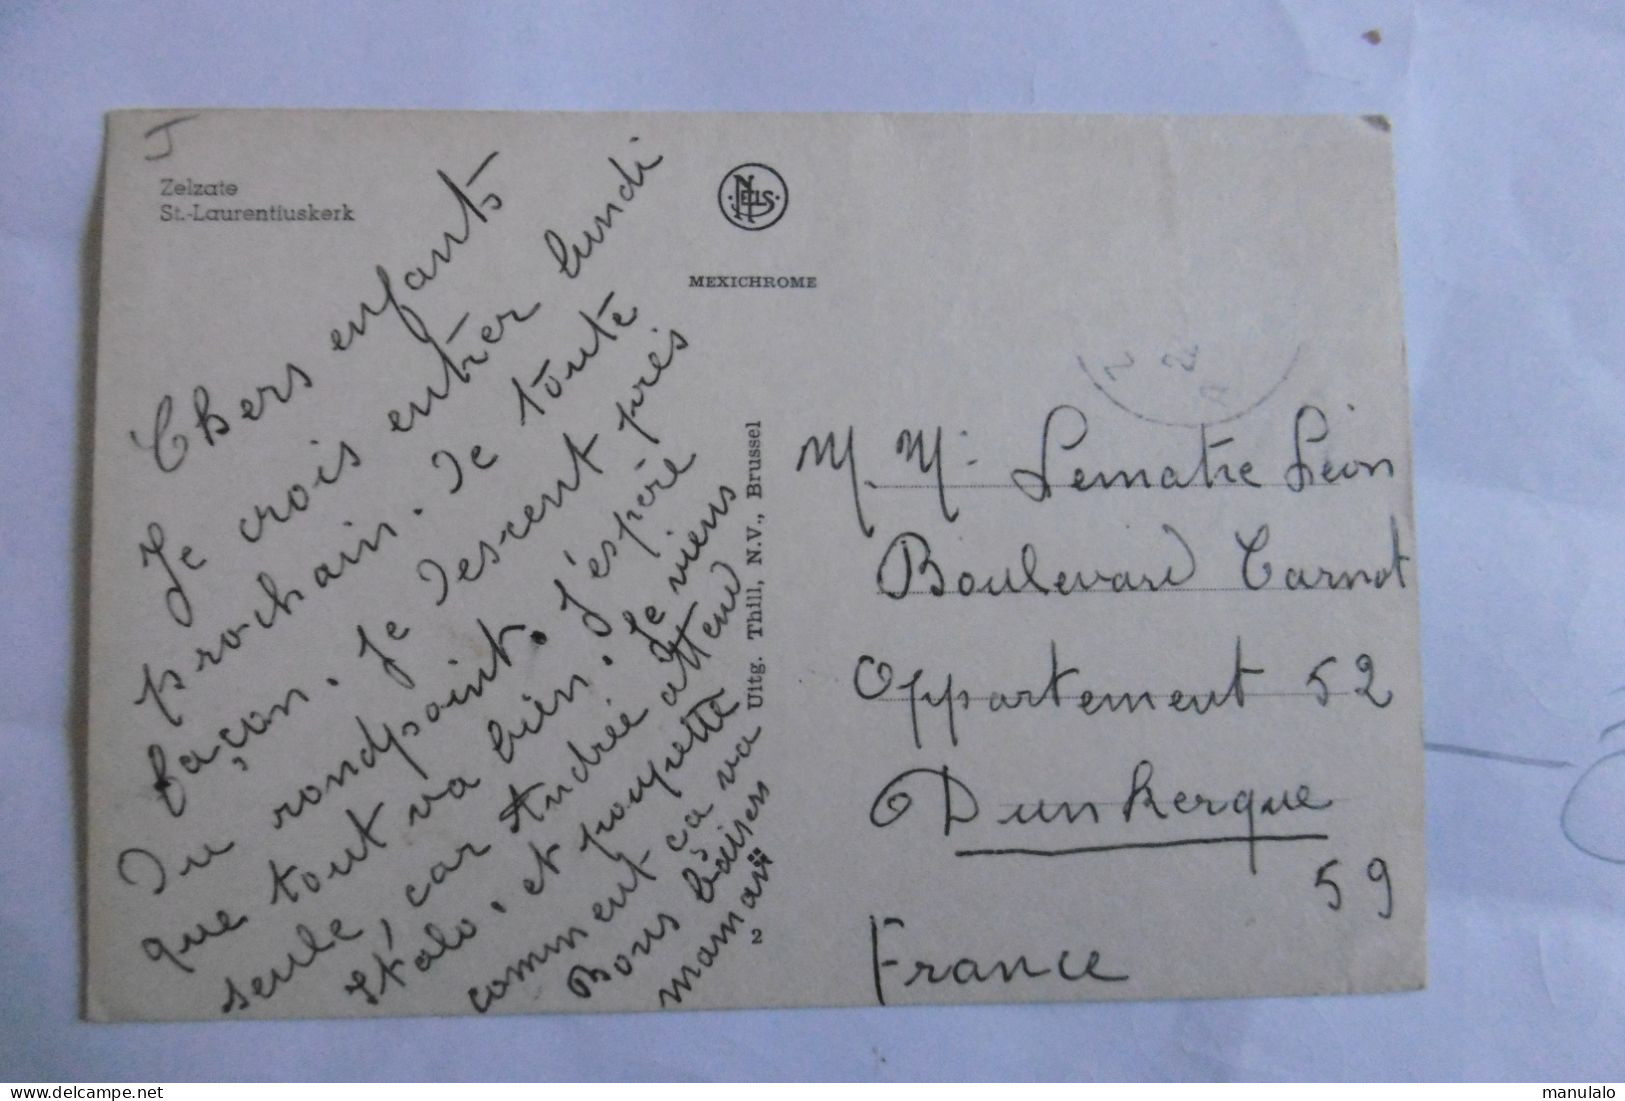 Zelzate
St.-Laurentiuskerk
NELS
MEXICHROME
Uitg. Thill, N.V., Brussel
2
Chers enfants
Je crois entrer lundi
prochain. De toute
façon. Je descent près
du rondpoint. J'éspère
que tout va bien. Je viens
seule, car Andrée attend
Italo. et poupette
comment ça va
Bons baisers
maman
M. Me Lematre Léon
Boulevard Carnot
Appartement 52
Dunkerque
59
France
manulalo